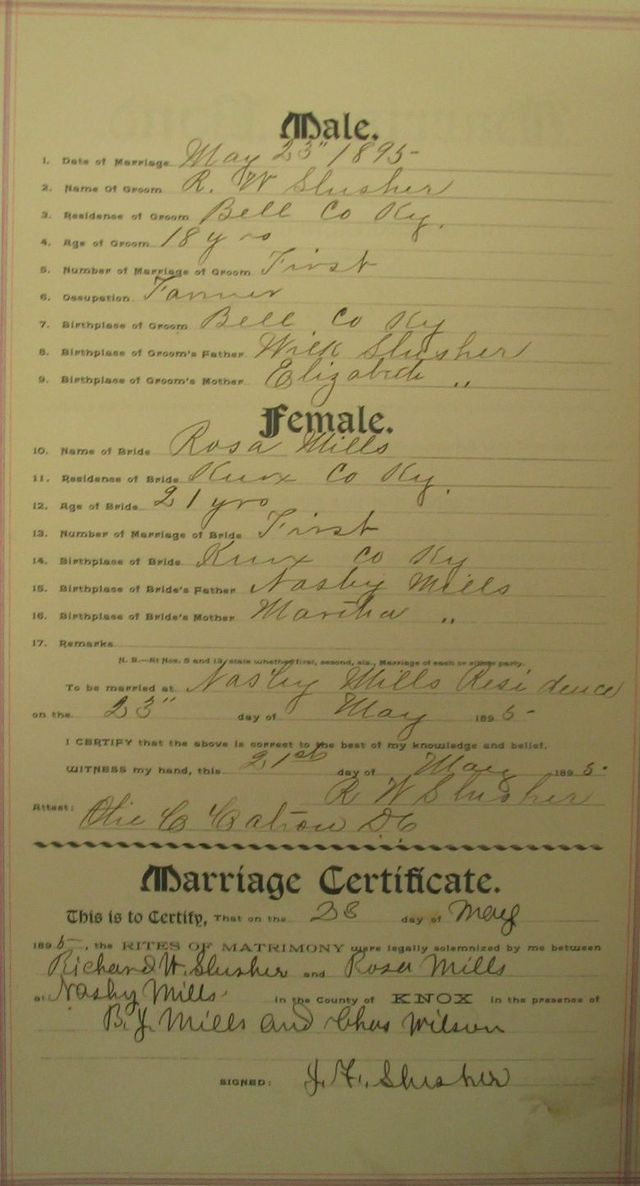 Male.
1. Date of Marriage May 23" 1895
2. Name Of Groom R. W Slusher
3. Residence of Groom Bell Co Ky.
4. Age of Groom 18 yrs
5. Number of Marriage of Groom First
6. Occupation Farmer
7. Birthplace of Groom Bell Co Ky
8. Birthplace of Groom's Father Wilk Slusher
9. Birthplace of Groom's Mother Elizabeth "
Female.
10. Name of Bride Rosa Mills
11. Residence of Bride Knox Co Ky.
12. Age of Bride 21 yrs
13. Number of Marriage of Bride First
14. Birthplace of Bride Knox Co Ky
15. Birthplace of Bride's Father Nasby Mills
16. Birthplace of Bride's Mother Martha "
17. Remarks
N. B.—At Nos. 5 and 13, state whether first, second, etc., Marriage of each or either party.
To be married at Nasby Mills Residence
on the 23" day of May 1895
I CERTIFY that the above is correct to the best of my knowledge and belief.
WITNESS my hand, this 21st day of May 1895.
R W Slusher
Attest: C DC
Marriage Certificate.
This is to Certify, That on the 23 day of May
1895, the RITES OF MATRIMONY were legally solemnized by me between
Richard W. Slusher and Rosa Mills
at Nasby Mills in the County of KNOX in the presence of
B. J. Mills and Chas Wilson
SIGNED: J. F. Slusher